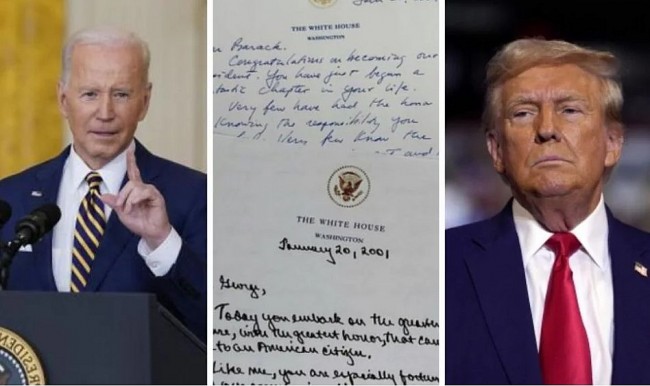 THE WHITE HOUSE
WASHINGTON
Barack.
Congratulations on becoming our
You have just begun a
Chapter in your life.
Very few have had the honor
Knowing the responsibility you
Very few know the
and
THE WHITE HOUSE
WASHINGTON
January 20, 2001
George,
Today you embark on the greatest
with the greatest honor, that can
to an American citizen.
Like me, you are especially